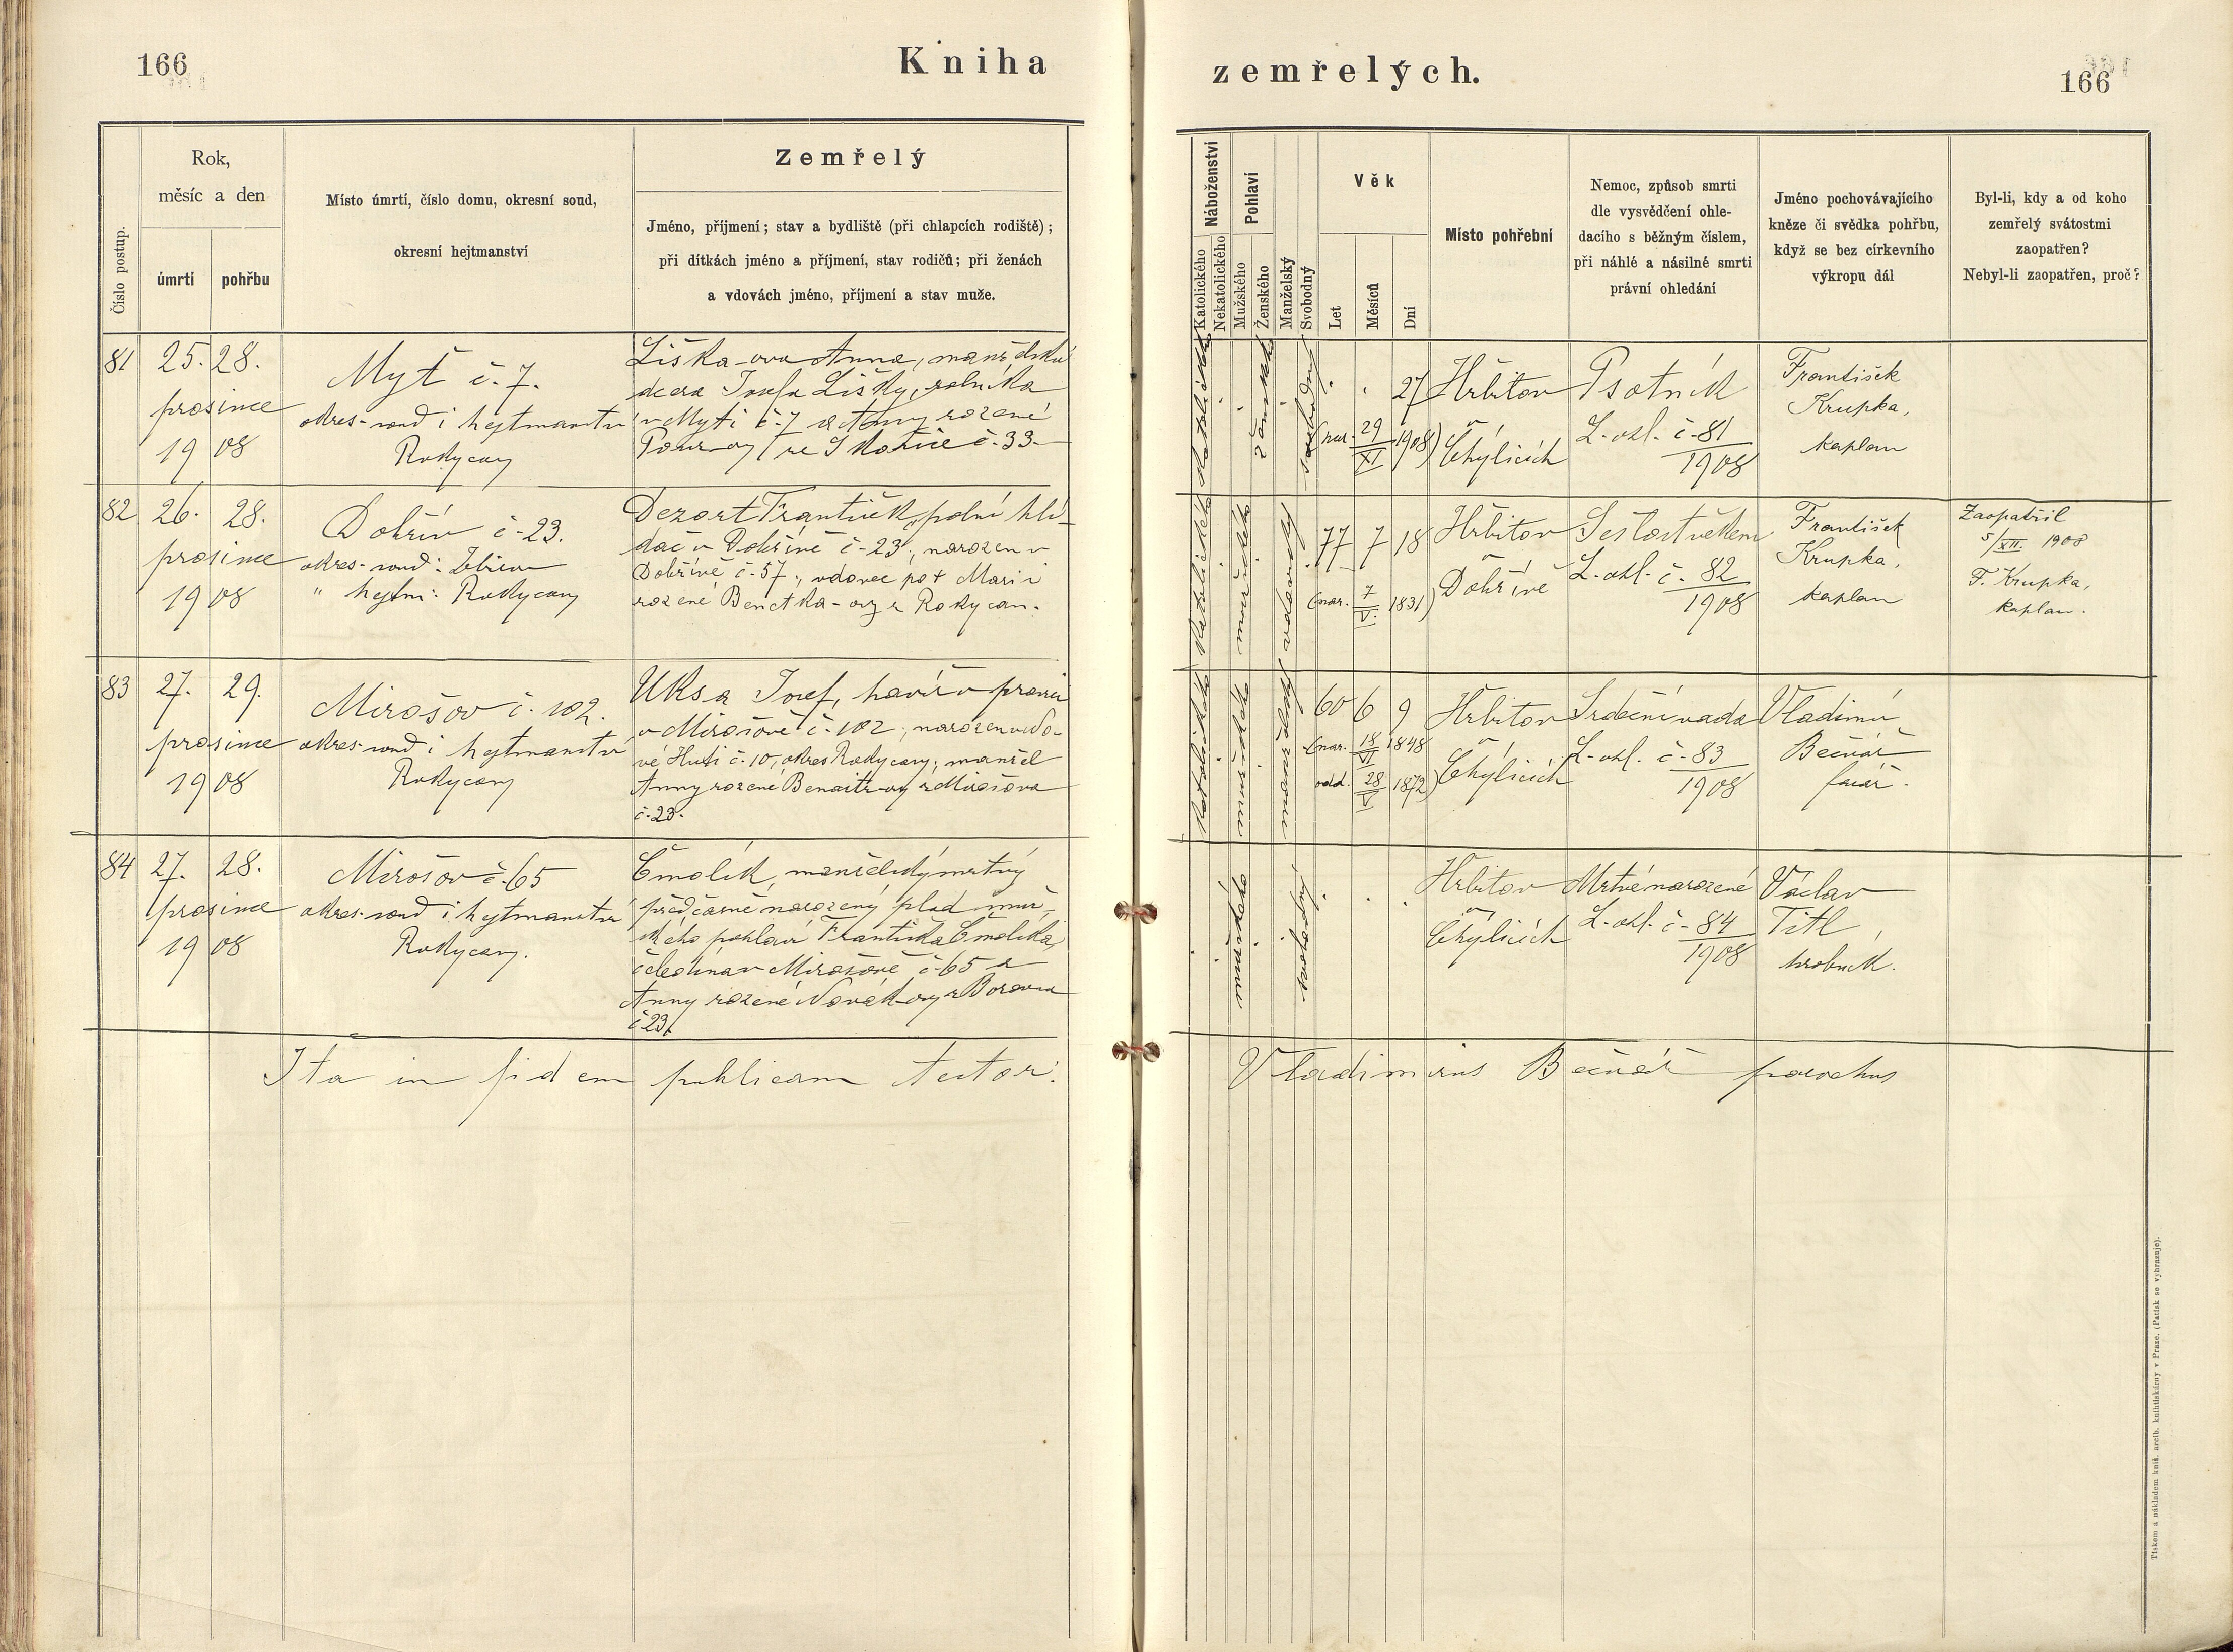 166
Kniha
zemřelých.
166
Číslo postup.
Rok,
měsíc a den
úmrtí
pohřbu
Místo úmrtí, číslo domu, okresní soud,
okresní hejtmanství
Zemřelý
Jméno, příjmení; stav a bydliště (při chlapcích rodiště);
při dítkách jméno a příjmení, stav rodičů; při ženách
a vdovách jméno, příjmení a stav muže.
Náboženství
Katolického
Nekatolického
Pohlaví
Mužského
Ženského
Manželský
Svobodný
Věk
Let
Měsíců
Dní
Místo pohřební
Nemoc, způsob smrti
dle vysvědčení ohle-
dacího s běžným číslem,
při náhlé a násilné smrti
právní ohledání
Jméno pochovávajícího
kněze či svědka pohřbu,
když se bez církevního
výkropu dál
Byl-li, kdy a od koho
zemřelý svátostmi
zaopatřen?
Nebyl-li zaopatřen, proč?
81
25. 28.
prosince
1908
Myť č. 7.
okres. soud i hejtmanství
Rokycany
Liška-ova Anna, manželská
dcera Josefa Lišky, rolníka
v Myti č. 7 a Anny rozené
ze Skořice č. 33.
katolického
ženské
svobodný
27
(nar. 29/XI 1908)
Hřbitov
v Čhylicích
Psotník
L. ohl. č. 81/1908
František
Krupka,
kaplan
82
26. 28.
prosince
1908
Dobřív č. 23.
okres. soud: Zbiroh
" hejtm: Rokycany
Dezort František, polní hlí-
dač v Dobřívě č. 23, narozen v
Dobřívě č. 57, vdovec po † Marii
rozené Benetka-ovy z Rokycan.
katolického
mužského
vdovský
77 7 18
(nar. 7/V. 1831)
Hřbitov
v Dobřívě
Sešlost věkem
L. ohl. č. 82/1908
František
Krupka,
kaplan
Zaopatřil
5/XII. 1908
F. Krupka,
kaplan.
83
27. 29.
prosince
1908
Mirošov č. 102.
okres. soud i hejtmanství
Rokycany
Uksa Josef, havíř v
v Mirošově č. 102, narozen v No-
vé Huti č. 10, okres Rokycany; manžel
Anny rozené z Mirošova
č. 23.
katolického
mužského
manželský
60 6 9
(nar. 18/VI 1848
odd. 28/V 1872)
Hřbitov
v Čhylicích
Srdeční vada
L. ohl. č. 83/1908
Vladimír
Bečvář
farář.
84
27. 28.
prosince
1908
Mirošov č. 65
okres. soud i hejtmanství
Rokycany.
Čmolík, manželský mrtvý
předčasně narozený plod muž-
ského pohlaví Františka Čmolíka,
čeledína v Mirošově č. 65 a
Anny rozené Novák-ovy z Borovna
č. 23.
mužského
svobodný
Hřbitov
v Čhylicích
Mrtvě narozené
L. ohl. č. 84/1908
Václav
Titl,
hrobník.
Ita in fidem publicam testor:
Vladimirus Bečvář parochus
Tiskem a nákladem kníž. arcib. knihtiskárny v Praze. (Patisk se vyhrazuje).